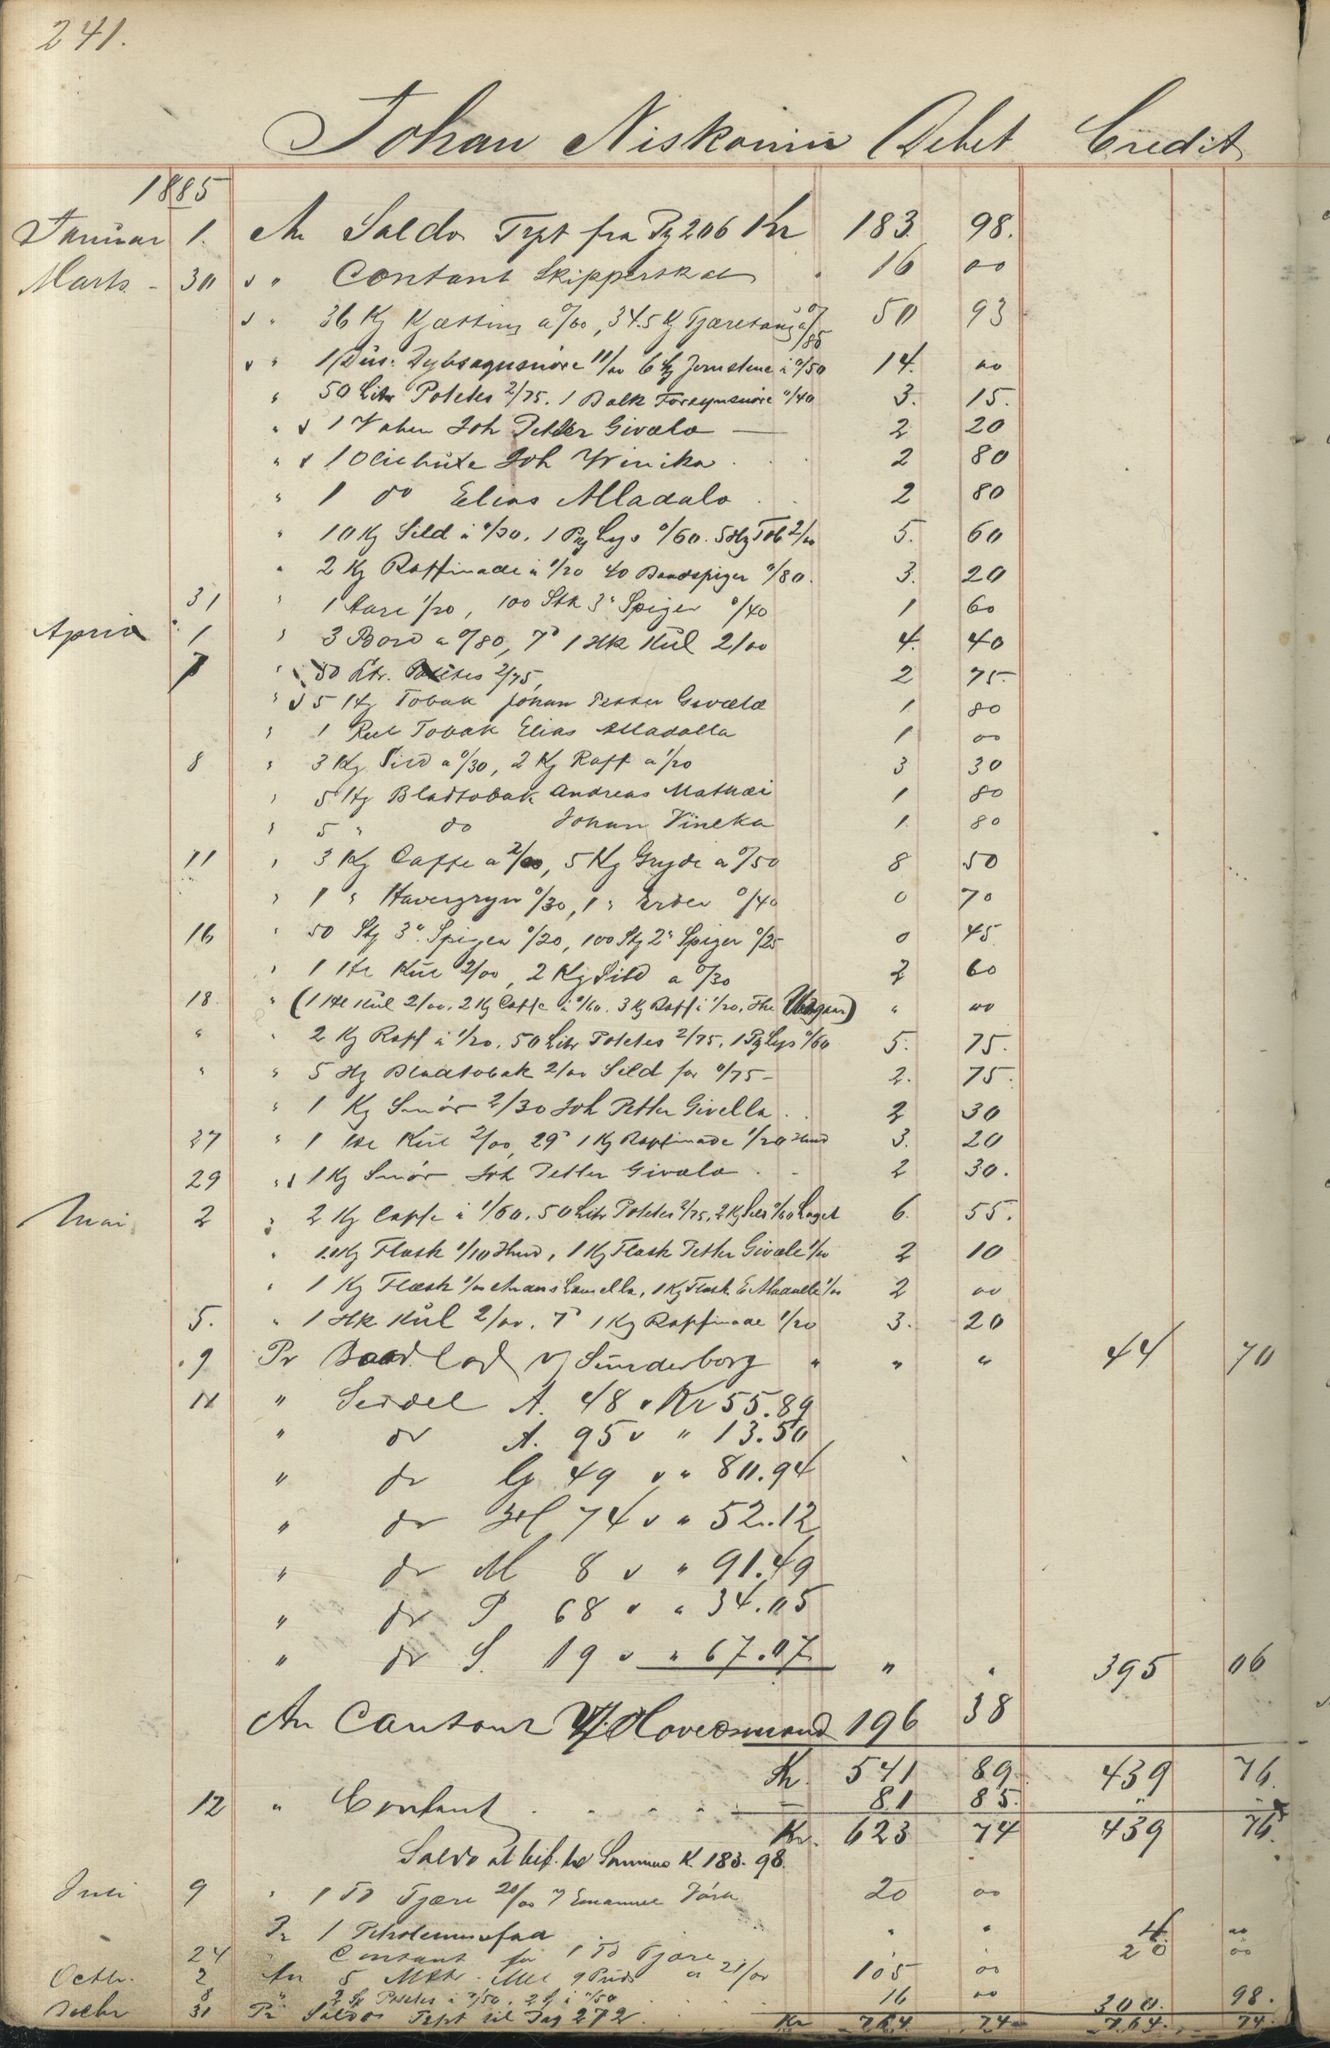 241.
Johan Niskanin Debet Credit
1885
Januar 1. An Saldo Trpt fra Pg 206 Kr 183. 98.
Marts - 30 " Contant Skipperskat 16 00
" 36 Kg Kjætting a 0/60, 34.5 Kg Tjæretoug a 0/85 50 93
" 1 Dus: Dybsagnsnöre 11/00 6 Kg Jernstene à 0/50 14. 00
" 50 Liter Potetes 2/75. 1 Balk Forsynsnöre 0/40 3. 15.
" 1 Joh Petter Givælo — 2 20
" 1 Oliebuxe Joh Winika 2 80
" 1 do Elias Alladalo 2 80
" 10 Kg Sild à 0/30. 1 Pg Lys 0/60. 5 Hg Tob 2/00 5. 60
" 2 Kg Raffinade à 1/20 40 Baadspiger 0/80. 3. 20
31 " 1 Aare 1/20, 100 Stk 3" Spiger 0/40 1 60
April 1 " 3 Bord a 0/80, 7d 1 Hk Kul 2/00 4. 40
7 " 50 Ltr. Potetes 2/75, 2 75.
" 5 Hg Tobak Johan Petter Givælæ 1 80
" 1 Rul Tobak Elias Alladalla 1 00
8 " 3 Kg Sild a 0/30, 2 Kg Raff a 1/20 3 30
" 5 Hg Bladtobak Andreas Mathæi 1 80
" 5 " do Johan Vineka 1 80
11 " 3 Kg Caffe a 2/00, 5 Kg Gryde a 0/50 8 50
" 1 " Havregryn 0/30, 1 " Erder 0/40 0 70
16 " 50 Stg 3" Spiger 0/20, 100 Stg 2" Spiger 0/25 0 45
" 1 Hl Kul 2/00, 2 Kg Sild a 0/30 2 60
18 " (1 Hl Kul 2/00. 2 Kg Caffe à 1/60. 3 Kg Raff à 1/20. ) " 00
" " 2 Kg Raff à 1/20. 50 Litr Potetes 2/75. 1 Pg Lys 0/60 5. 75.
" " 5 Hg Bladtobak 2/00 Sild for 0/75 - 2. 75.
" 1 Kg Smör 2/30 Joh Petter Givella 2 30
27 " 1 Hl Kul 2/00, 29d 1 Kg Raffinade 1/20 Hmd 3. 20
29 " 1 Kg Smör Joh Petter Givælo 2 30.
Mai 2 " 2 Kg Caffe à 1/60. 50 Litr Potetes 2/75. 2 Kg 0/60 Laget 6. 55.
" Kg Flæsk 1/10 Hmd, 1 Kg Flæsk Petter Givæle 1/00 2 10
" 1 Kg Flæsk 1/00 , 1 Kg Flæsk E Alladalla 1/00 2 00
5. " 1 Hk Kul 2/00. 7d 1 Kg Raffinade 1/20 3. 20
9 Pr Baadlod v/ Sünderborg " " " 44 70
11 " Seddel A. 48 " Kr 55.89
" do A. 95 " " 13.50
" do G 49 " " 80.94
" do H 74 " " 52.12
" do M 8 " " 91.49
" do P 68 " " 34.05
" do S. 19 " " 67.07 " " 395 06
An Cantant v/ Hovedmand 196 38
Kr. 541 89 439 76.
12 " Contant 81 85. " "
Kr. 623 74 439 76.
Saldo Summa K. 183. 98.
Juli 9 " 1 Td Tjære 20/00 Emanuel 20 00
Pr 1 Petroleumsfad " " 4 00
24 " Contant for 1 Td Tjære 20 00
Octbr. 2 An 5 Mel 9 Puds a 21/00 105 00
8 " Potetes 16 00
Decbr 31 Pr Saldo Trpt til Pag 272 300. 98.
Kr 764 74 764. 74.